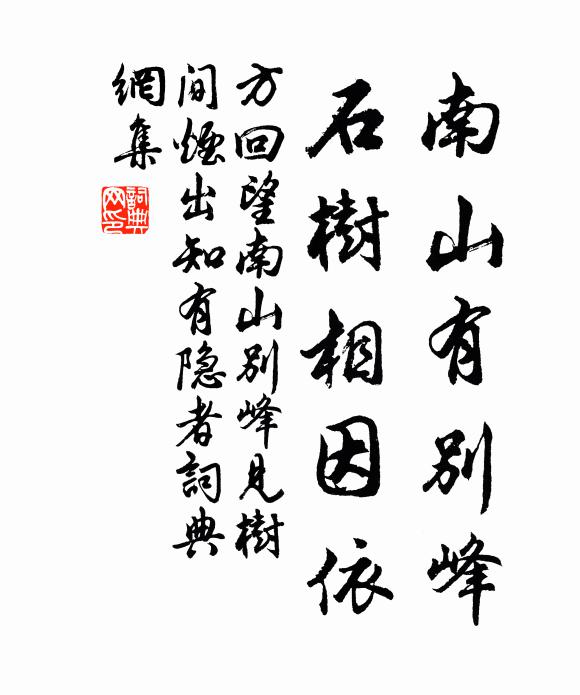 南山有別峰
石樹相因依
方回望南山別峰見樹
間煙出知有隐者詞典
網集
詞典
网印